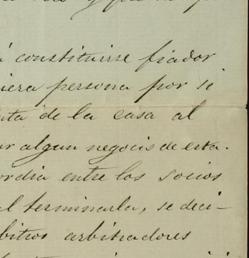 á constituirse fiador
iera persona por si
nta de la casa al
ar algun negocio de esta.
ordia entre los socios
al terminarla, se deci-
bitros arbitradores